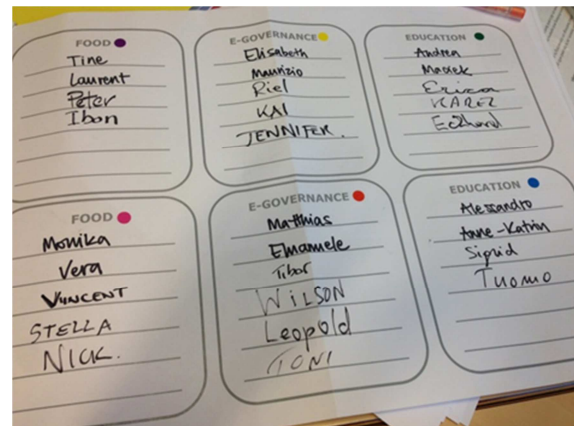 FOOD
Tine
Laurent
Peter
Ibon
E-GOVERNANCE
Elisabeth
Maurizio
Riel
KAI
JENNIFER.
EDUCATION
Andrea
Maciek
Erica
KAREL
Eckhard
FOOD
Monika
Vera
VINCENT
STELLA
NICK.
E-GOVERNANCE
Matthias
Emanuele
Tibor
WILSON
Leopold
TONI
EDUCATION
Alessandro
Anne-Katrin
Sigrid
Tuomo